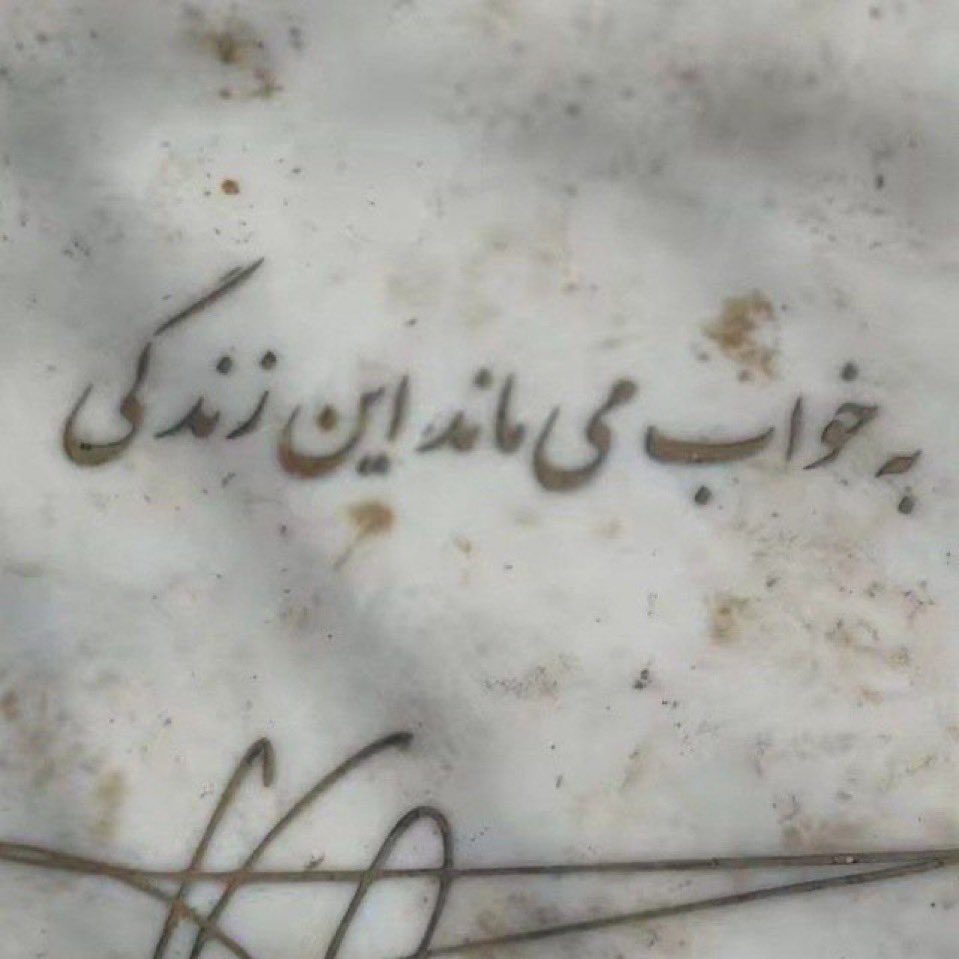 به خواب می ماند این زندگی